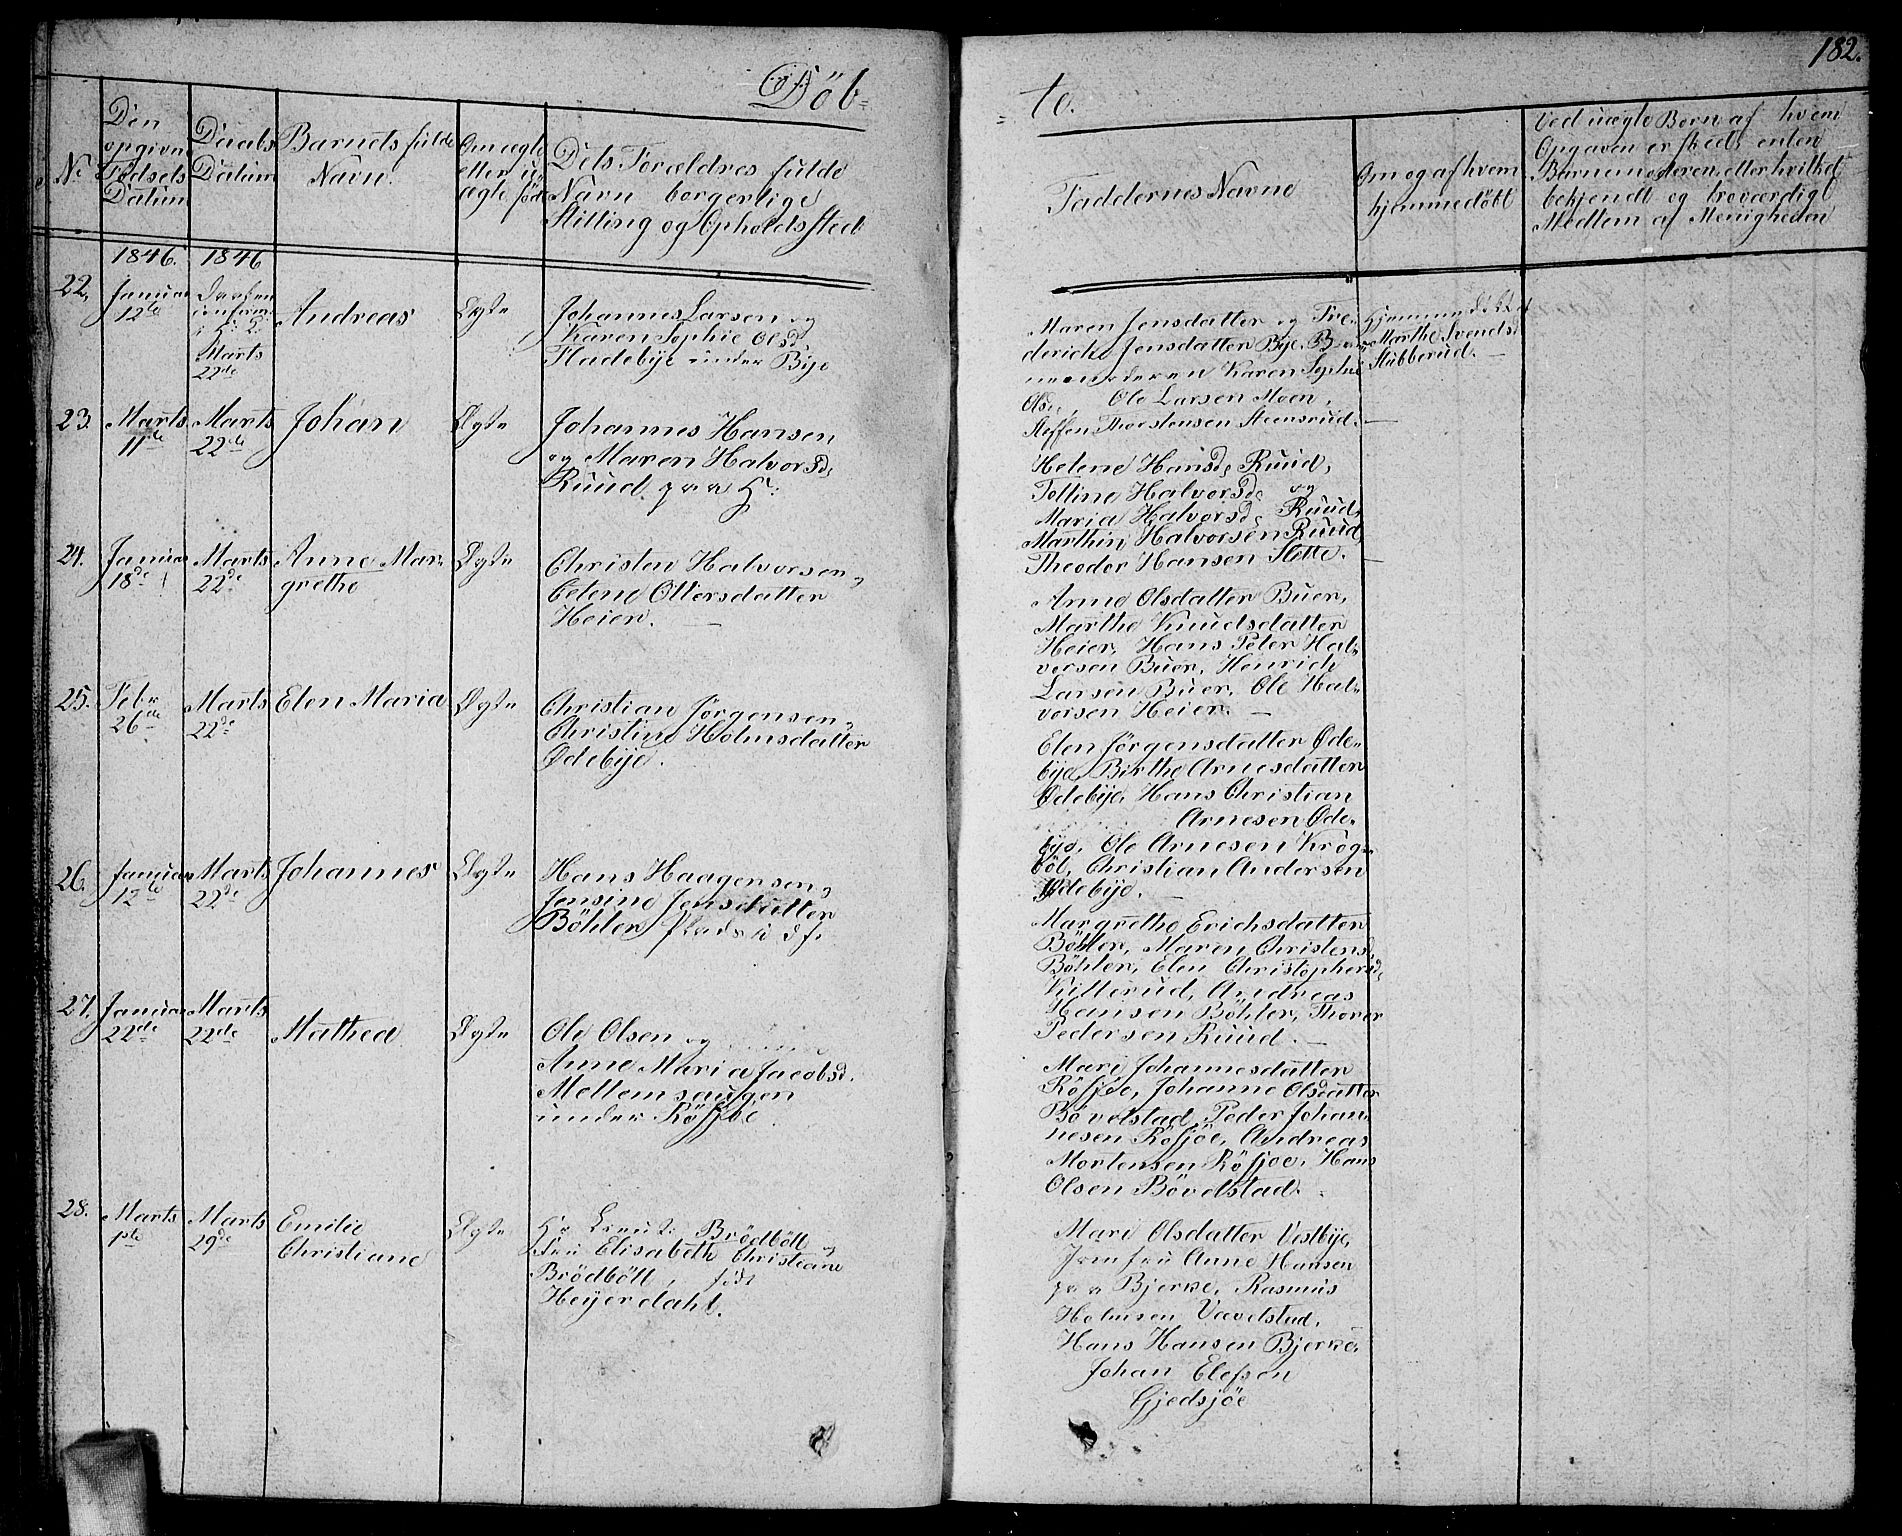 182.
Döb-
te.
No
Den
opgivne
Fødsels
Datum
Daabs
Datum
Barnets fulde
Navn.
Om ægte
eller u-
ægte född
Dets Forældres fulde
Navn borgerlige
Stilling og Opholdssted
Faddernes Navne
Om og af hvem
hjemmedöbt
Ved uægte Børn af hvem
Opgaven er skeet, enten
Barnemoderen eller hvilket
bekjendt og troværdigt
Medlem af Menigheden
1846. 1846
22.
Januar
12te
Daaben
confirm.
i K:
Marts
22de
Andreas
Ægte
Johannes Larsen og
Karen Sophie Olsd.
Fladebye under Bye
Maren Jensdatter og Fre-
dericke Jensdatter Bye, Bar-
nemoderen Karen Sophie
Olsd., Ole Larsen Moen,
Steffen Thorstensen Steensrud.
Hjemmedöbt af
Marthe Svends.
Stubberud.
23.
Marts
11te
Marts
22de
Johan
Ægte
Johannes Hansen
og Maren Halvorsd.
Ruud paa
Helene Hansd. Ruud,
Talline Halvorsd. og
Maria Halvorsd. Ruud,
Marthin Halvorsen Ruud
Theodor Hansen Slette.
24.
Januar
18de
Marts
22de
Anne Mar-
grethe
Ægte
Christen Halvorsen
Helene Ottersdatter
Heier.
Anne Olsdatter Buer,
Marthe Knudsdatter
Heier, Hans Peter Hal-
vorsen Buer, Henrich
Larsen Buer, Ole Hal-
vorsen Heier.
25.
Febr
26de
Marts
22de
Elen Maria
Ægte
Christian Jörgensen
Christine Holmsdatter
Ødebye.
Elen Jörgensdatter Øde-
bye, Birthe Arnesdatter
Ødebye, Hans Christian
Arnesen Øde-
bye, Ole Arnesen Krog-
böl, Christian Andersen
Ødebye.
26.
Januar
12te
Marts
22de
Johannes
Ægte
Hans Haagensen
Jensine Jensdatter
Böhler
Margrethe Erichsdatter
Böhler, Maren Christensd.
Böhler, Elen Christophersd.
Kitterud, Andreas
Hansen Böhler, Thorer
Pedersen Ruud.
27.
Januar
22de
Marts
22de
Mathea
Ægte
Ole Olsen og
Anne Maria Jacobsd.
Mellemsaugen
under Rösjöe
Mari Johannesdatter
Rösjöe, Johanne Olsdatter
Bövelstad, Peder Johan-
nesen Rösjöe, Andreas
Mortensen Rösjoe, Hans
Olsen Bövelstad.
28.
Marts
1ste
Marts
29de
Emilie
Christiane
Ægte
Hr Leeut: Brödböll og
Fru Elisabeth Christiane
Brödböll, föd
Heyerdahl.
Mari Olsdatter Vestbye,
Jomfru Anne Hansen
paa Bjerke, Rasmus
Holmsen Vævelstad,
Hans Hansen Bjerke,
Johan Elefsen
Gjedsjöe